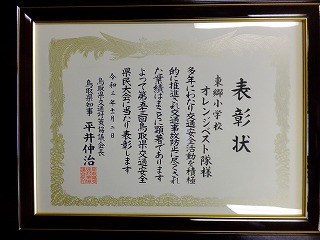 表彰状
東郷小学校
オレンジベスト隊様
多年にわたり交通安全活動を積極
的に推進され交通事故防止に尽くされ
た業績はまことに顕著であります
よって第五十回鳥取県交通安全
県民大会に当たり表彰します
令和三年十一月二日
鳥取県交通対策協議会会長
鳥取県知事 平井伸治